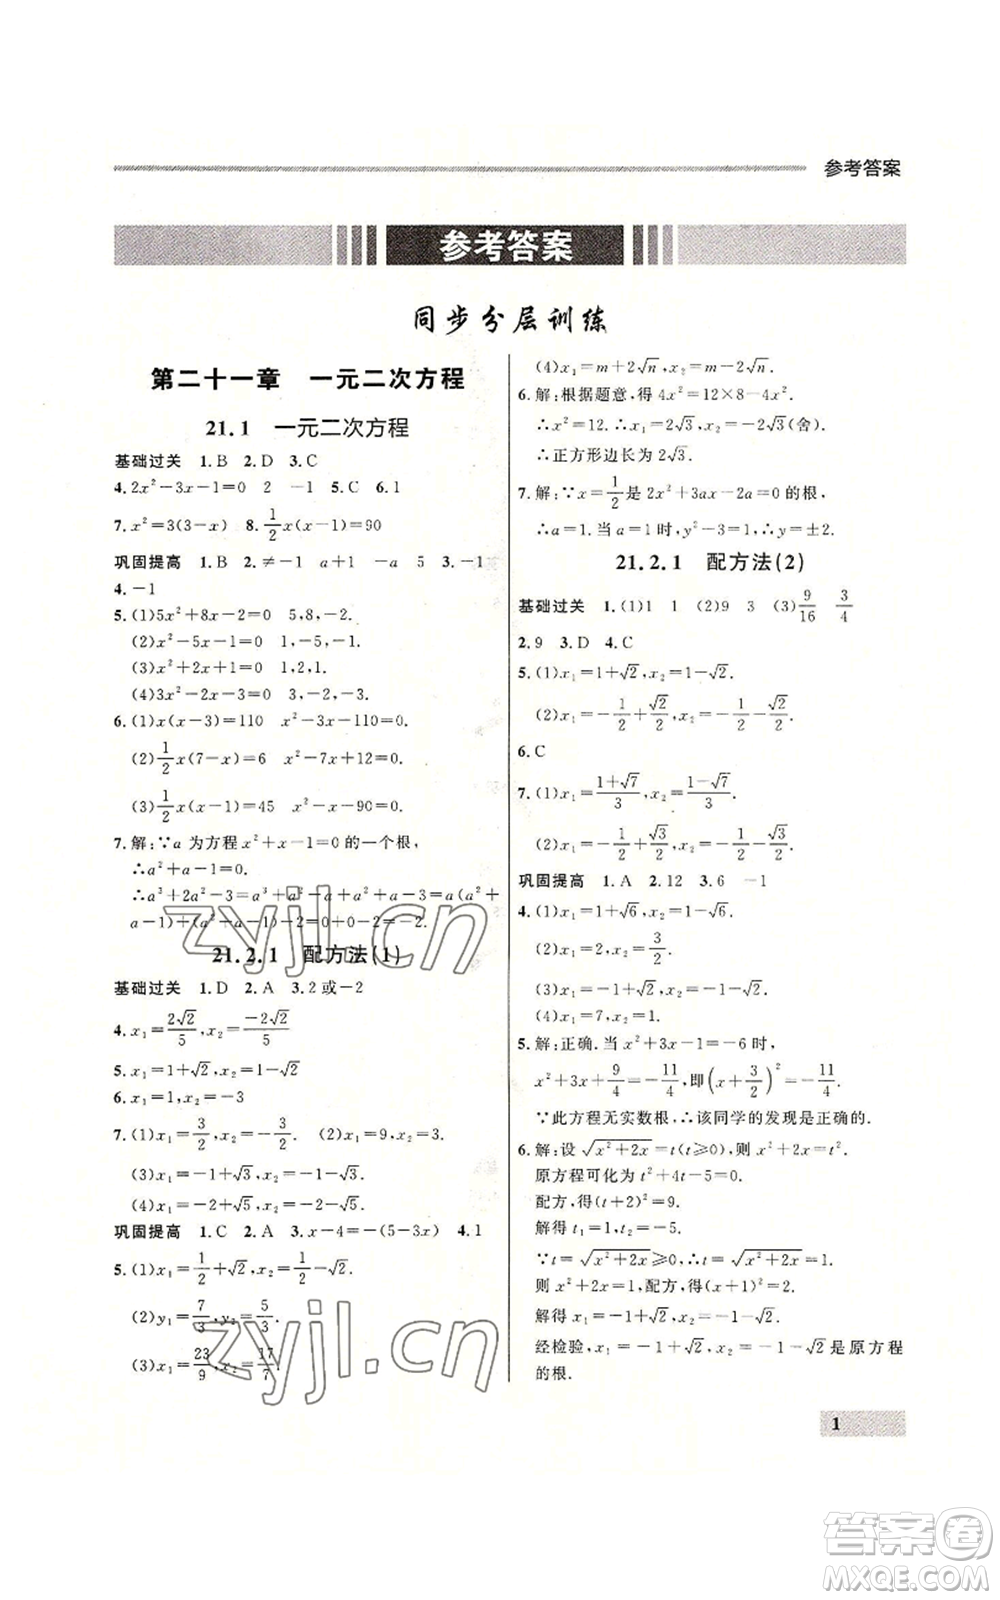 参考答案
参考答案
同步分层训练
第二十一章 一元二次方程
21.1 一元二次方程
基础过关 1.B 2.D 3.C
4.2x²-3x-1=0 2 -1 5.C 6.1
7.x²=3(3-x) 8.1/2x(x-1)=90
巩固提高 1.B 2.≠-1 a+1 -a 5 3.-1
4.-1
5.(1)5x²+8x-2=0 5,8,-2.
(2)x²-5x-1=0 1,-5,-1.
(3)x²-1=0 1,0,-1.
(4)3x²-x-3=0 3,-1,-3.
6.(1)x(x-3)=110 x²-3x-110=0.
(2)1/2x(7-x)=6 x²-7x+12=0.
(3)1/2x(x-1)=45 x²-x-90=0.
7.解:∵a 为方程 x²+x-1=0 的一个根,
∴a²+a-1=0.
∴a³+2a²-3=a³+a²-a+a²+a-3=a(a²+
a-1)+(a²+a-1)-2=0+0-2=-2.
21.2.1 配方法(1)
基础过关 1.D 2.A 3.2 或-2
4.x₁=2√2/5,x₂=-2√2/5
5.x₁=1+√2,x₂=1-√2
6.x₁=1,x₂=-3
7.(1)x₁=3/2,x₂=-3/2. (2)x₁=9,x₂=3.
(3)x₁=-1+√3,x₂=-1-√3.
(4)x₁=-2+√5,x₂=-2-√5.
巩固提高 1.C 2.A 3.x-4=-(5-3x) 4.1
5.(1)x₁=1/2+√2,x₂=1/2-√2.
(2)y₁=7/3,y₂=5/3.
(3)x₁=23/9,x₂=17/7.
(4)x₁=m+2√n,x₂=m-2√n.
6.解:根据题意,得 4x²=12×8-4x².
∴x²=12.∴x₁=2√3,x₂=-2√3(舍).
∴正方形边长为 2√3.
7.解:∵x=1/2是 2x²+3ax-2a=0 的根,
∴a=1.当 a=1 时,y²-3=1,∴y=±2.
21.2.1 配方法(2)
基础过关 1.(1)1 1 (2)9 3 (3)9/16 3/4
2.9 3.D 4.C
5.(1)x₁=1+√2,x₂=1-√2.
(2)x₁=-1/2+√2/2,x₂=-1/2-√2/2.
6.C
7.(1)x₁=1+√7/3,x₂=1-√7/3.
(2)x₁=1/2+√3/2,x₂=1/2-√3/2.
巩固提高 1.A 2.12 3.6 -1
4.(1)x₁=1+√6,x₂=1-√6.
(2)x₁=2,x₂=3/2.
(3)x₁=-1+√2,x₂=-1-√2.
(4)x₁=7,x₂=1.
5.解:正确.当 x²+3x-1=-6 时,
x²+3x+9/4=-11/4,即(x+3/2)²=-11/4.
∵此方程无实数根,∴该同学的发现是正确的.
6.解:设 √x²+2x=t(t≥0),则 x²+2x=t².
原方程可化为 t²+4t-5=0.
配方,得(t+2)²=9.
解得 t₁=1,t₂=-5.
∵t=√x²+2x≥0,∴t=√x²+2x=1.
则 x²+2x=1,配方,得(x+1)²=2.
解得 x₁=-1+√2,x₂=-1-√2.
经检验,x₁=-1+√2,x₂=-1-√2是原方程
的根.
1
zyjl.cn
zyjl.cn
答案卷
MXQE.COM